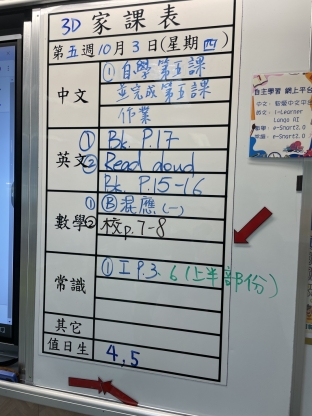 3D 家課表
第五週10月3日(星期四)
中文
① 自學第五課
並完成第五課
作業
英文
① Bk. P.17
② Read aloud
Bk. P.15-16
數學
① Ⓑ混應(一)
② 校p.7-8
常識
① 工P.3. 6 (上半部份)
其它
值日生
4, 5
自主學習 網上平台
i-Learner
e-Smart2.0
e-Smart2.0